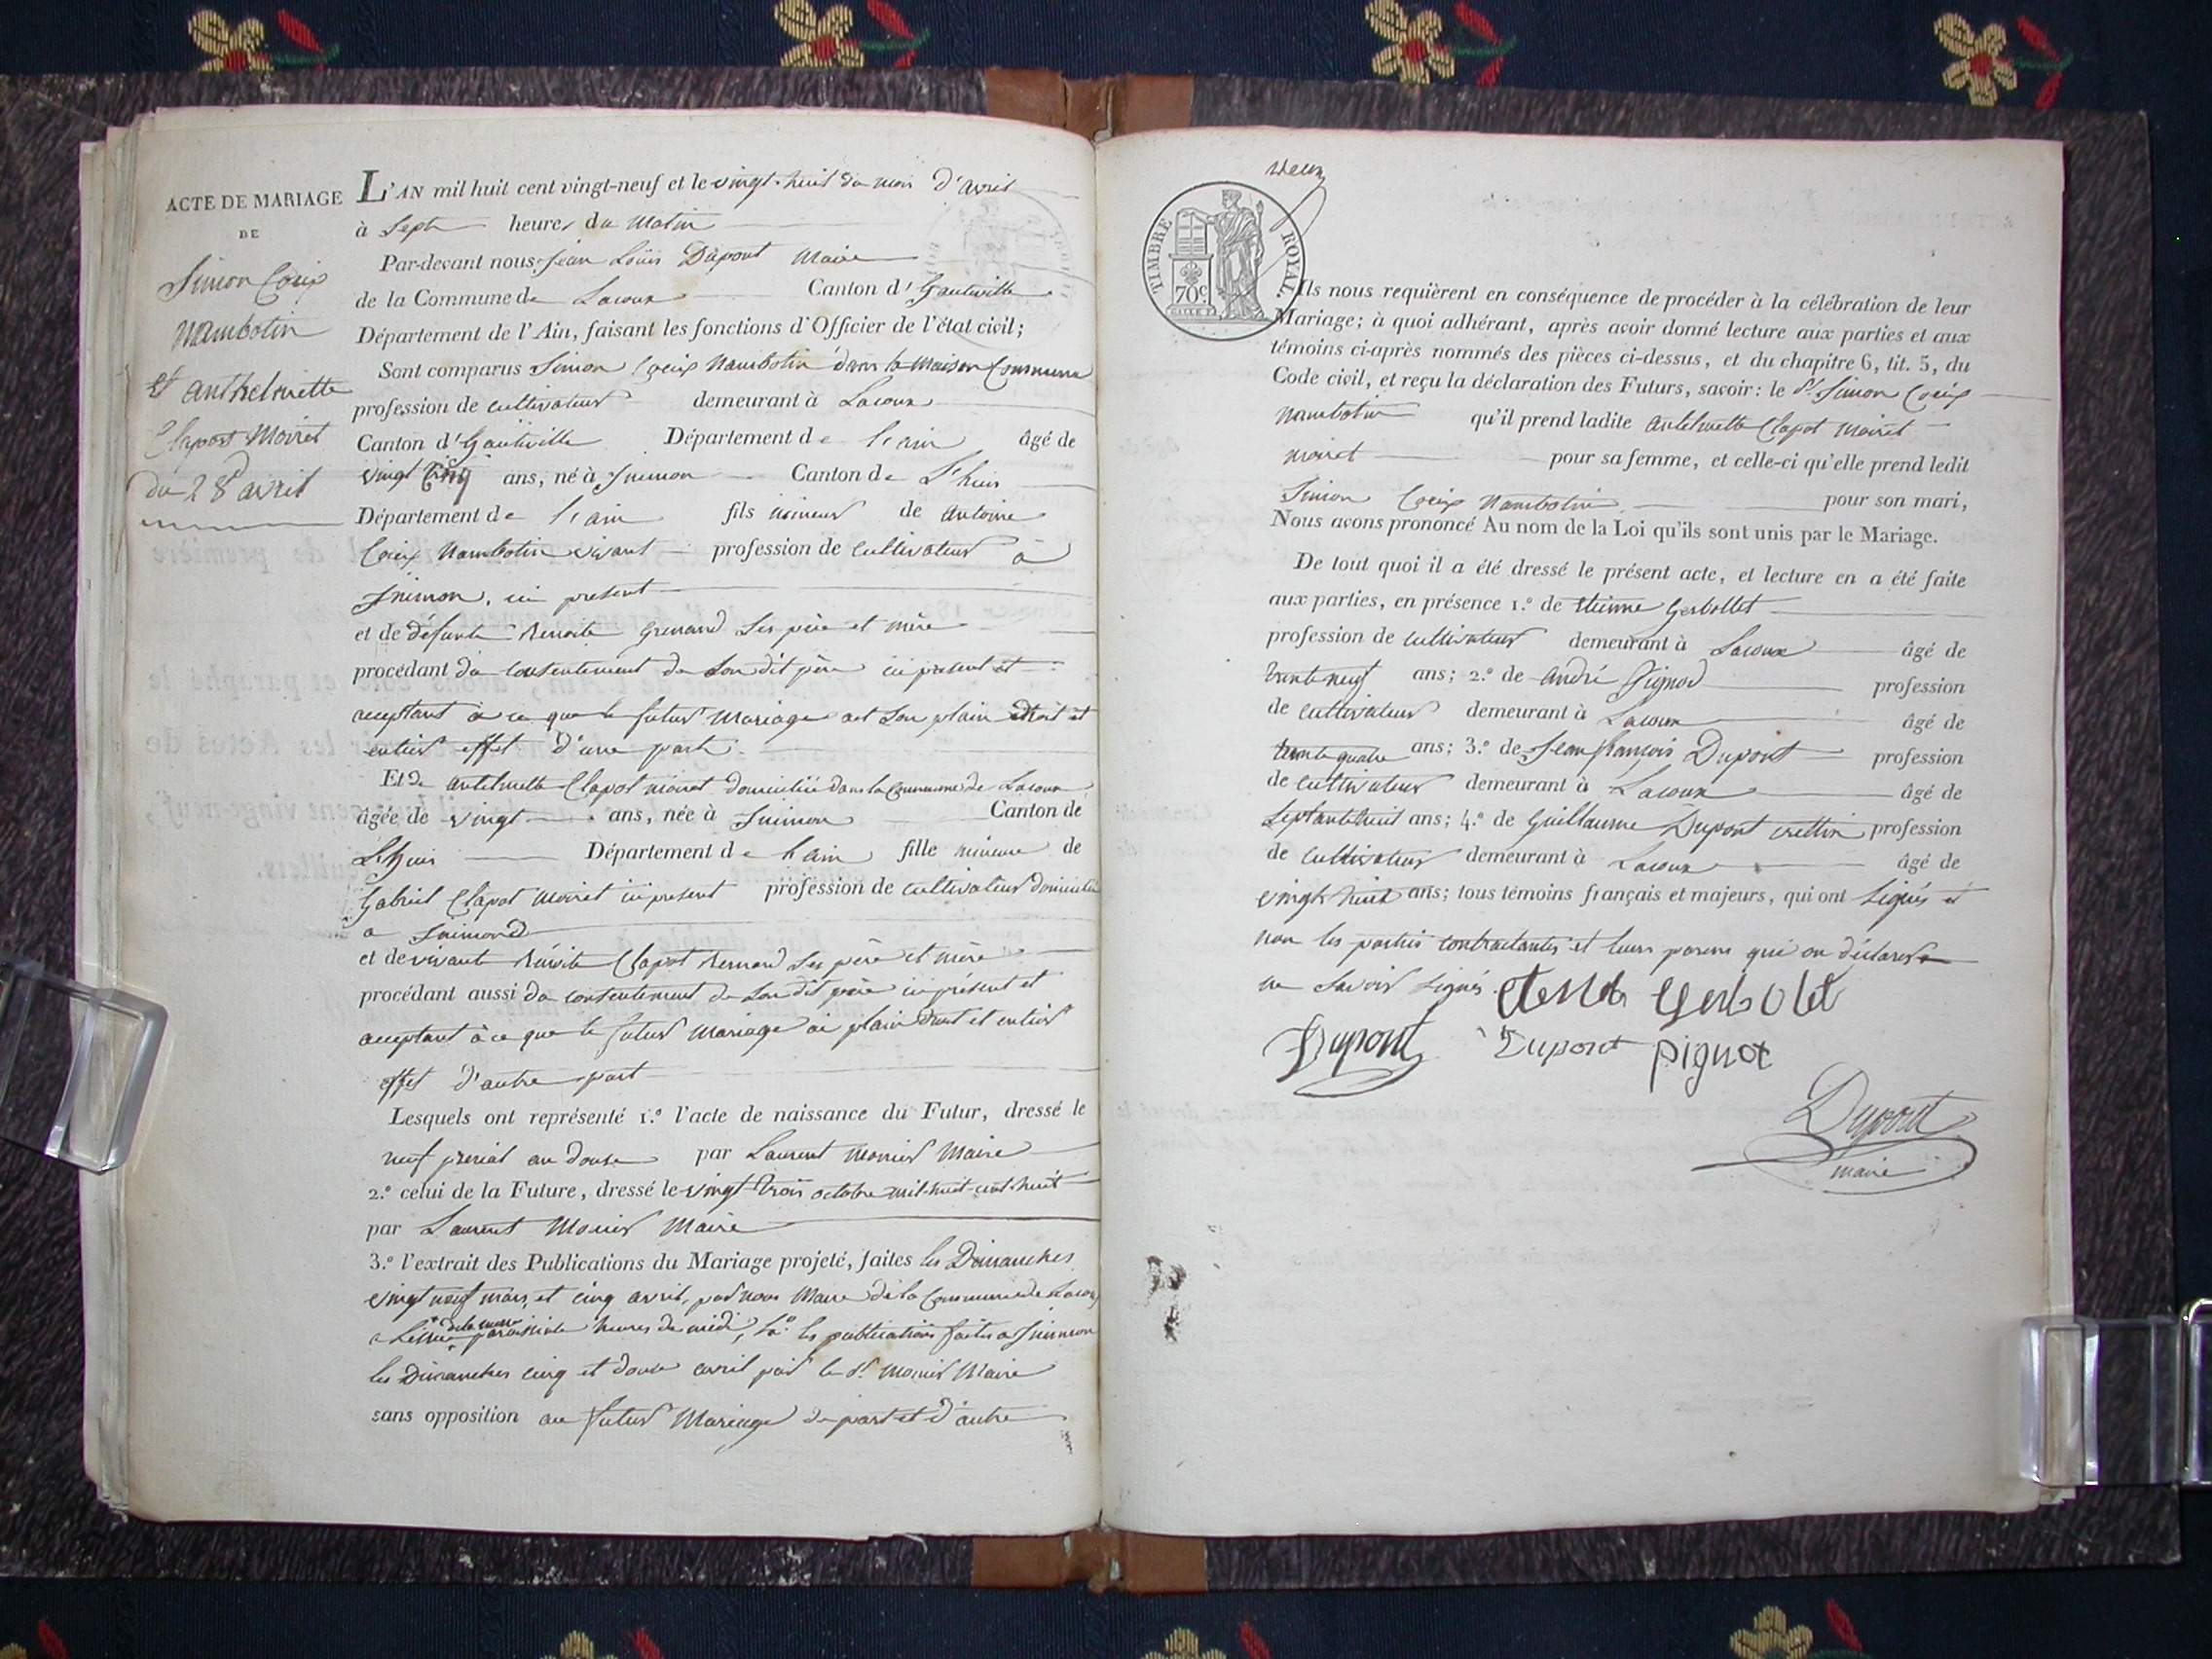 ACTE DE MARIAGE
DE
Simon Coux
Nambotin
et anthelmette
Clapost Moiret
du 28 avril
L'AN mil huit cent vingt-neuf et le vingt-huit du mois d'avril
à Sept heures du Matin
Par-devant nous Jean Louis Dupont Maire
de la Commune de Lacoux Canton d'hauteville
Département de l'Ain, faisant les fonctions d'Officier de l'état civil;
Sont comparus Simon Nambotin dans la Maison Commune
profession de cultivateur demeurant à Lacoux
Canton d'hauteville Département de l'ain âgé de
vingt cinq ans, né à Canton de L'huis
Département de l'ain fils mineur de antoine
Nambotin vivant profession de cultivateur à
ici present
et de défunte Benoite Grenard Ses père et mère
procédant du consentement de Son dit père ici present et
acceptant à ce que le futur Mariage Son plain droit et
entier effet d'une part.
Et de Clapot moiret domiciliée dans la Commune de Lacoux
âgée de vingt ans, née à Canton de
L'huis Département de l'ain fille mineure de
Gabriel Clapot Moiret ici present profession de cultivateur domicilié
a
et de vivante Clapot Ses père et mère
procédant aussi du consentement de Son dit père ici présent et
acceptant à ce que le futur Mariage ai plain droit et entier
effet d'autre part
Lesquels ont représenté 1.º l'acte de naissance du Futur, dressé le
neuf an douse par Laurent Monier Maire
2.º celui de la Future, dressé le vingt trois octobre mil-huit-cent-huit
par Laurent Monier Maire
3.º l'extrait des Publications du Mariage projeté, faites les Dimanches
vingt neuf mars, et cinq avril, par nous Maire de la Commune de Lacoux
de la messe
a paroissiale heures de midi, les publications faites a
les Dimanches cinq et douse avril par le Sr. Monier Maire
sans opposition au futur Mariage de part et d'autre
TIMBRE ROYAL.
70c
Ils nous requièrent en conséquence de procéder à la célébration de leur
Mariage; à quoi adhérant, après avoir donné lecture aux parties et aux
témoins ci-après nommés des pièces ci-dessus, et du chapitre 6, tit. 5, du
Code civil, et reçu la déclaration des Futurs, savoir: le Sr. Simon
Nambotin qu'il prend ladite Clapot moiret
moiret pour sa femme, et celle-ci qu'elle prend ledit
Simon Nambotin pour son mari,
Nous avons prononcé Au nom de la Loi qu'ils sont unis par le Mariage.
De tout quoi il a été dressé le présent acte, et lecture en a été faite
aux parties, en présence 1.º de Etienne Gerbollet
profession de cultivateur demeurant à Lacoux âgé de
trente neuf ans; 2.º de André Pignod profession
de cultivateur demeurant à Lacoux âgé de
trente quatre ans; 3.º de Jean françois Dupont profession
de cultivateur demeurant à Lacoux âgé de
Septante huit ans; 4.º de Guillaume Dupont profession
de cultivateur demeurant à Lacoux âgé de
vingt huit ans; tous témoins français et majeurs, qui ont Signés et
non les parties contractantes et leurs parens qui on déclarer
ne Savoir Signés.
Gerbolet
Dupont Dupont pignot
Dupont
maire